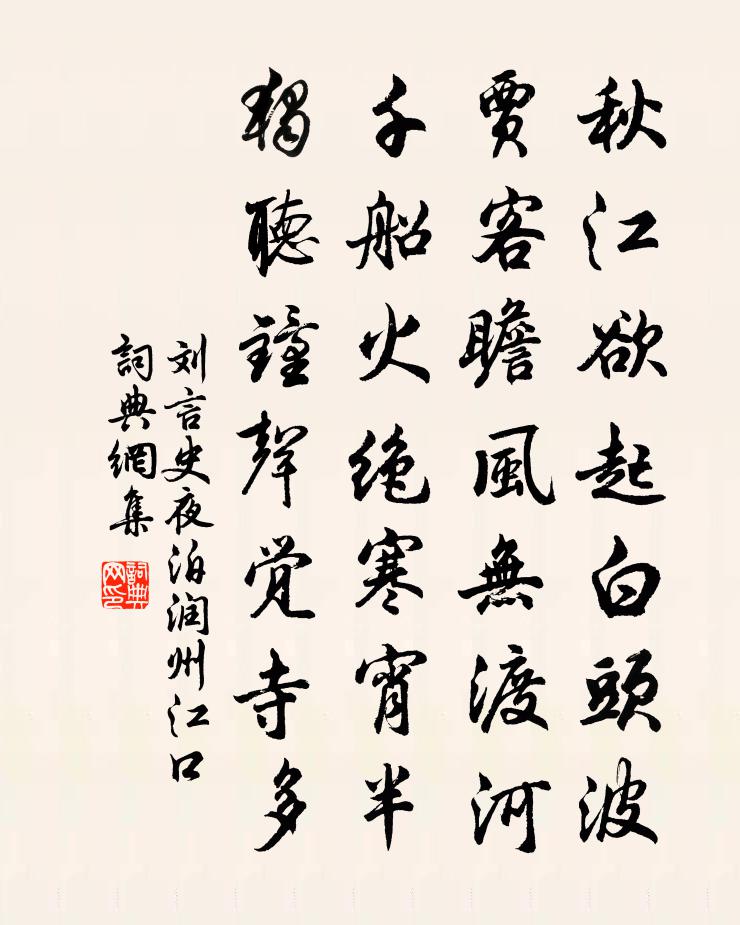 秋江欲起白頭波
賈客瞻風無渡河
千船火绝寒宵半
獨聽鐘聲觉寺多
刘言史夜泊润州江口
詞典網集
詞典网印